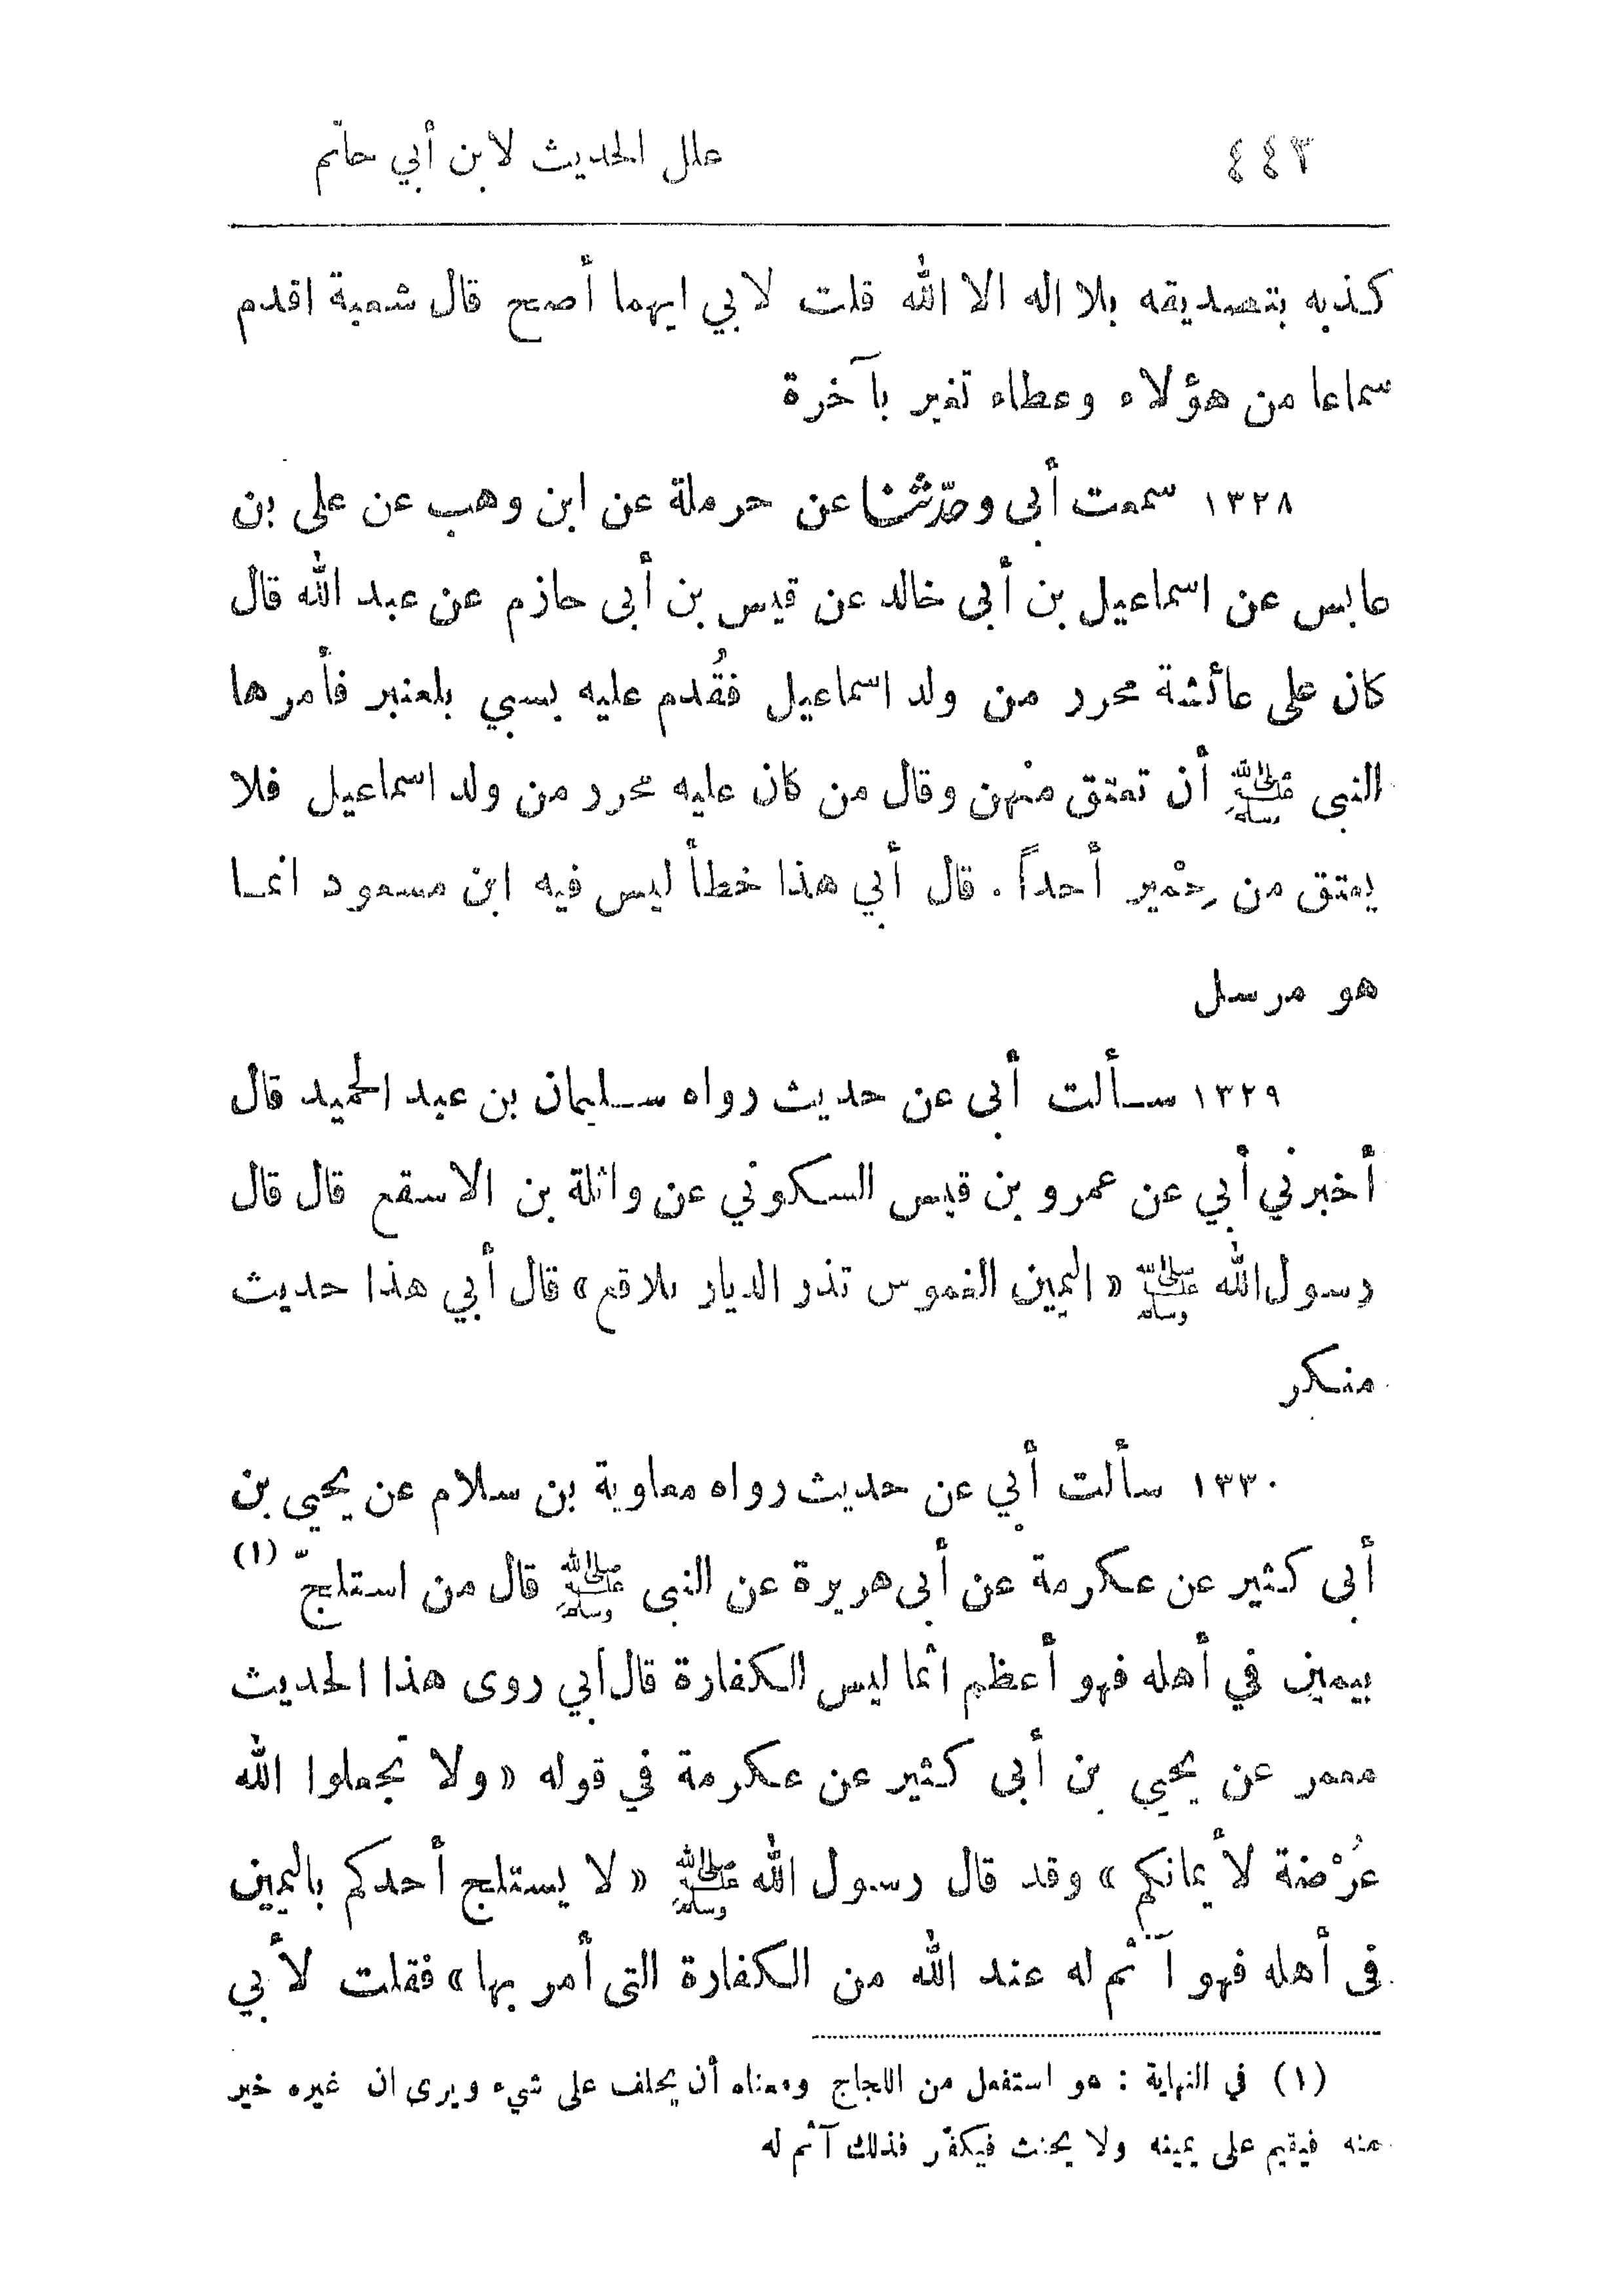 ٤٤٣ علل الحديث لابن أبي حاتم
كذبه بتصديقه بلا اله الا الله قلت لابي ايهما أصح قال شعبة اقدم
سماعا من هؤلاء وعطاء تغير بآخرة
١٣٢٨ سمعت أبى وحدّثنا عن حرملة عن ابن وهب عن على بن
عابس عن اسماعيل بن أبى خالد عن قيس بن أبى حازم عن عبد الله قال
كان على عائشة محرر من ولد اسماعيل فقُدم عليه بسبي بلعنبر فأمرها
النبى ﷺ أن تعتق منهن وقال من كان عليه محرر من ولد اسماعيل فلا
يعتق من حِمْير أحداً . قال أبي هذا خطأ ليس فيه ابن مسعود انما
هو مرسل
١٣٢٩ سألت أبى عن حديث رواه سليمان بن عبد الحميد قال
أخبرني أبي عن عمرو بن قيس السكوني عن واثلة بن الاسقع قال قال
رسول الله ﷺ « اليمين الغموس تذر الديار بلاقع » قال أبي هذا حديث
منكر
١٣٣٠ سألت أبي عن حديث رواه معاوية بن سلام عن يحيى بن
أبى كثير عن عكرمة عن أبى هريرة عن النبى ﷺ قال من استلجّ (١)
بيمين في أهله فهو أعظم اثما ليس الكفارة قال أبي روى هذا الحديث
معمر عن يحيى بن أبى كثير عن عكرمة في قوله « ولا تجعلوا الله
عُرْضة لأيمانكم » وقد قال رسول الله ﷺ « لا يستلج أحدكم باليمين
فى أهله فهو آثم له عند الله من الكفارة التى أمر بها » فقلت لأبي
(١) في النهاية : هو استفعل من اللجاج ومعناه أن يحلف على شيء ويرى ان غيره خير
منه فيقيم على يمينه ولا يحنث فيكفّر فذلك آثم له